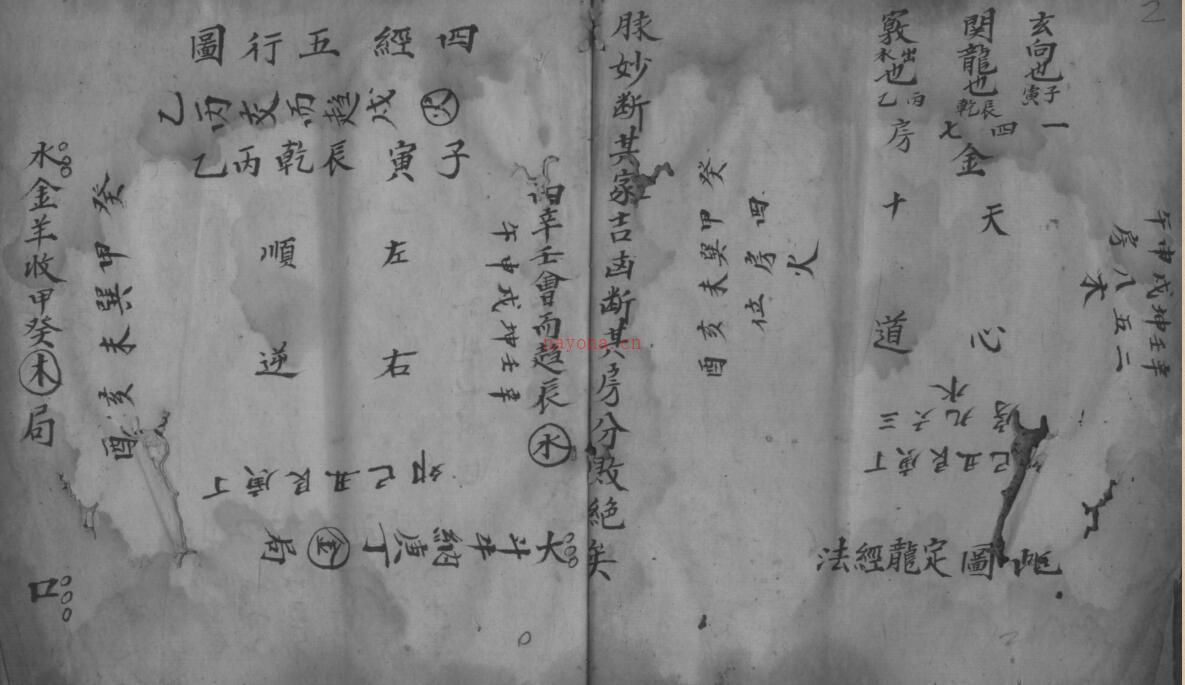 2
玄向也子寅
関龍也辰乾
竅水出也丙乙
一四七
金
房十
天心
道
午申戌坤壬辛
房八五二
木
癸甲巽未亥酉
四房位
火
水
房九六三
巳丑艮庚丁
圖定龍經法
脉妙断其家吉凶断其房分敗絶矣
四經五行圖
乙丙交而趨戌火
子寅辰乾丙乙
左右
順逆
辛壬會而趨辰水
午申戌坤壬辛
卯巳丑艮庚丁
大斗牛納庚丁金局
癸甲巽未亥酉
水金羊收甲癸木局
口
nayona.cn